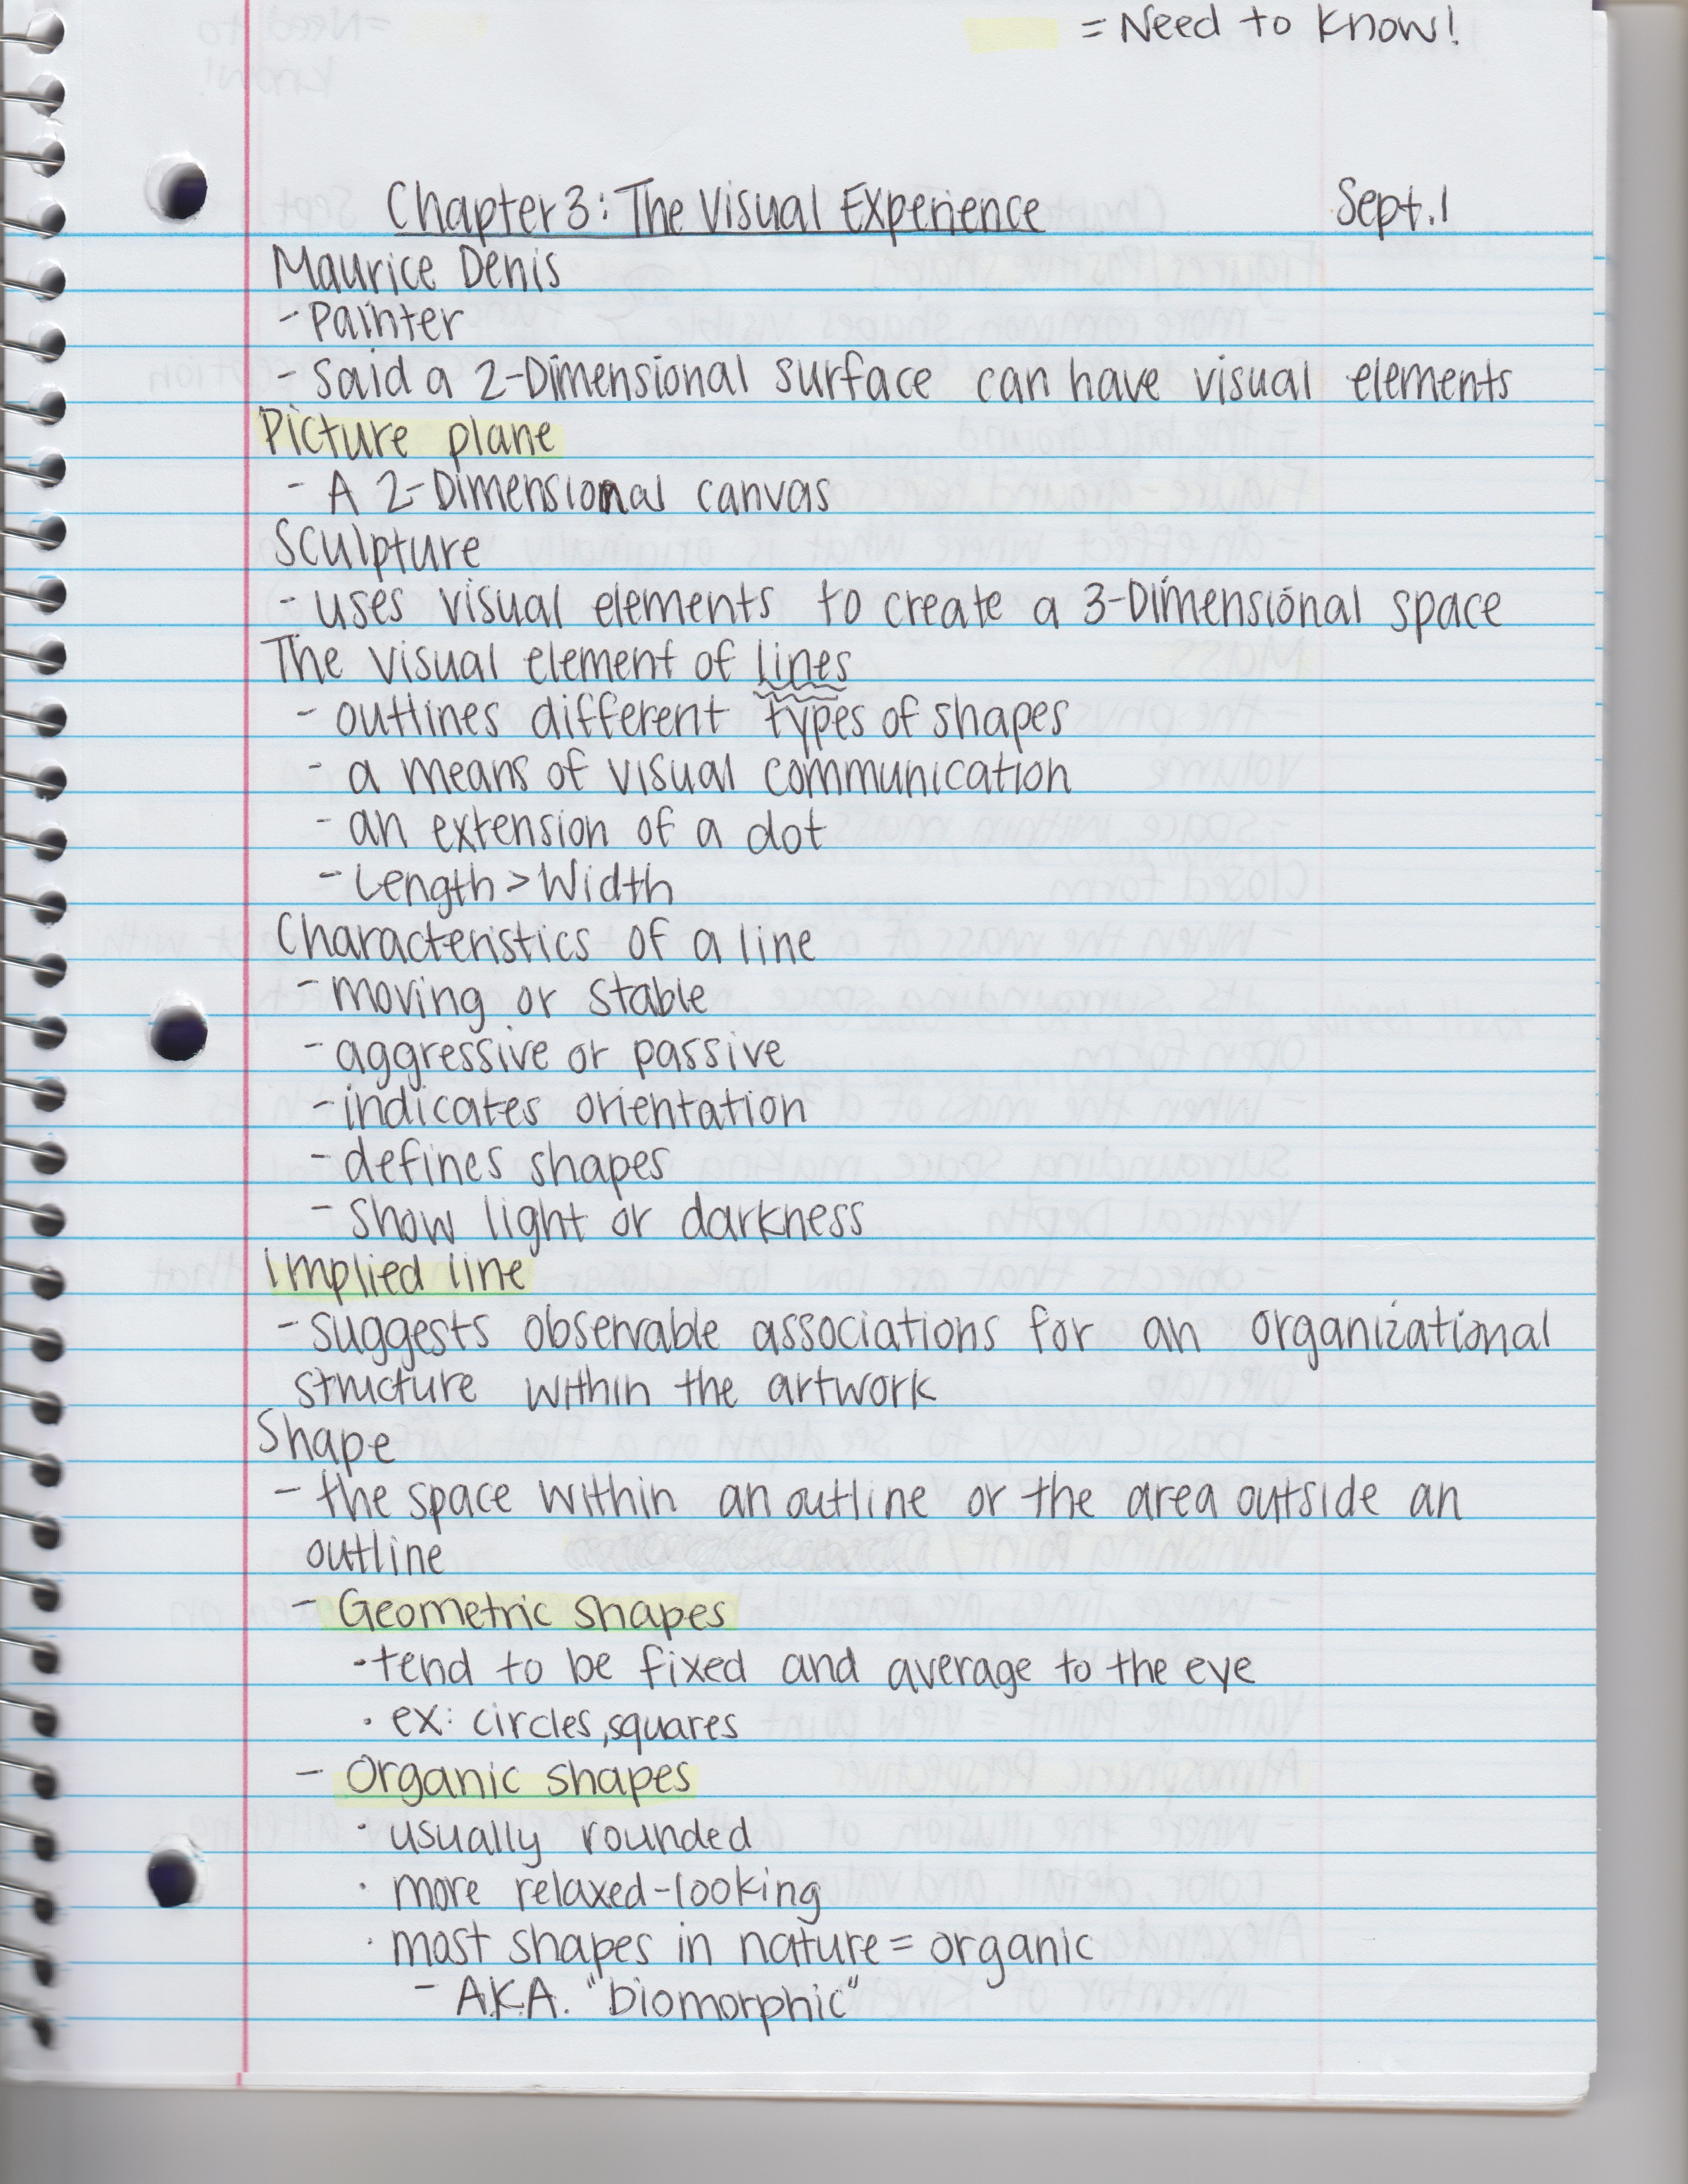 = Need to know!
Chapter 3: The Visual Experience Sept. 1
Maurice Denis
- Painter
- Said a 2-Dimensional surface can have visual elements
Picture plane
- A 2-Dimensional canvas
Sculpture
- uses visual elements to create a 3-Dimensional space
The visual element of lines
- outlines different types of shapes
- a means of visual communication
- an extension of a dot
- Length > Width
Characteristics of a line
- moving or stable
- aggressive or passive
- indicates orientation
- defines shapes
- show light or darkness
Implied line
- suggests observable associations for an organizational
structure within the artwork
Shape
- the space within an outline or the area outside an
outline
- Geometric shapes
· tend to be fixed and average to the eye
· ex: circles, squares
- Organic shapes
· usually rounded
· more relaxed-looking
· most shapes in nature = organic
- A.K.A. "biomorphic"